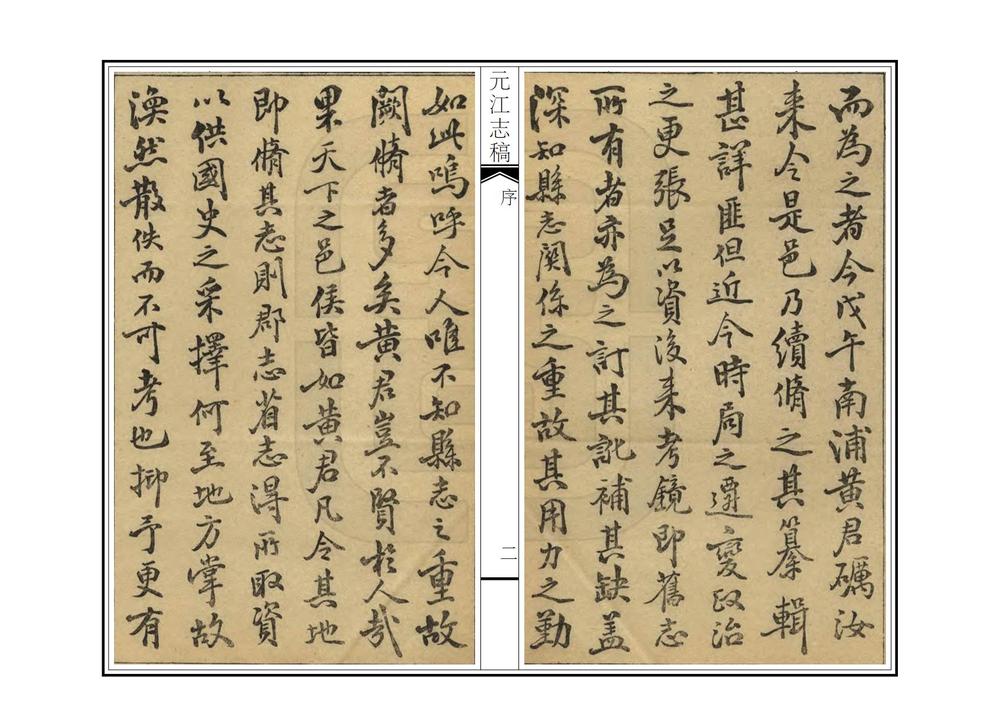 而為之者今戊午南浦黃君礪汝
来令是邑乃續脩之其纂輯
甚詳匪但近今時局之遷變政治
之更張足以資後来考鏡即舊志
所有者亦為之訂其訛補其缺蓋
深知縣志関係之重故其用力之勤
元江志稿
序
二
如此嗚呼今人唯不知縣志之重故
闕脩者多矣黃君豈不賢於人哉
果天下之邑侯皆如黃君凡令其地
即脩其志則郡志省志得所取資
以供國史之采擇何至地方掌故
渙然散佚而不可考也抑予更有